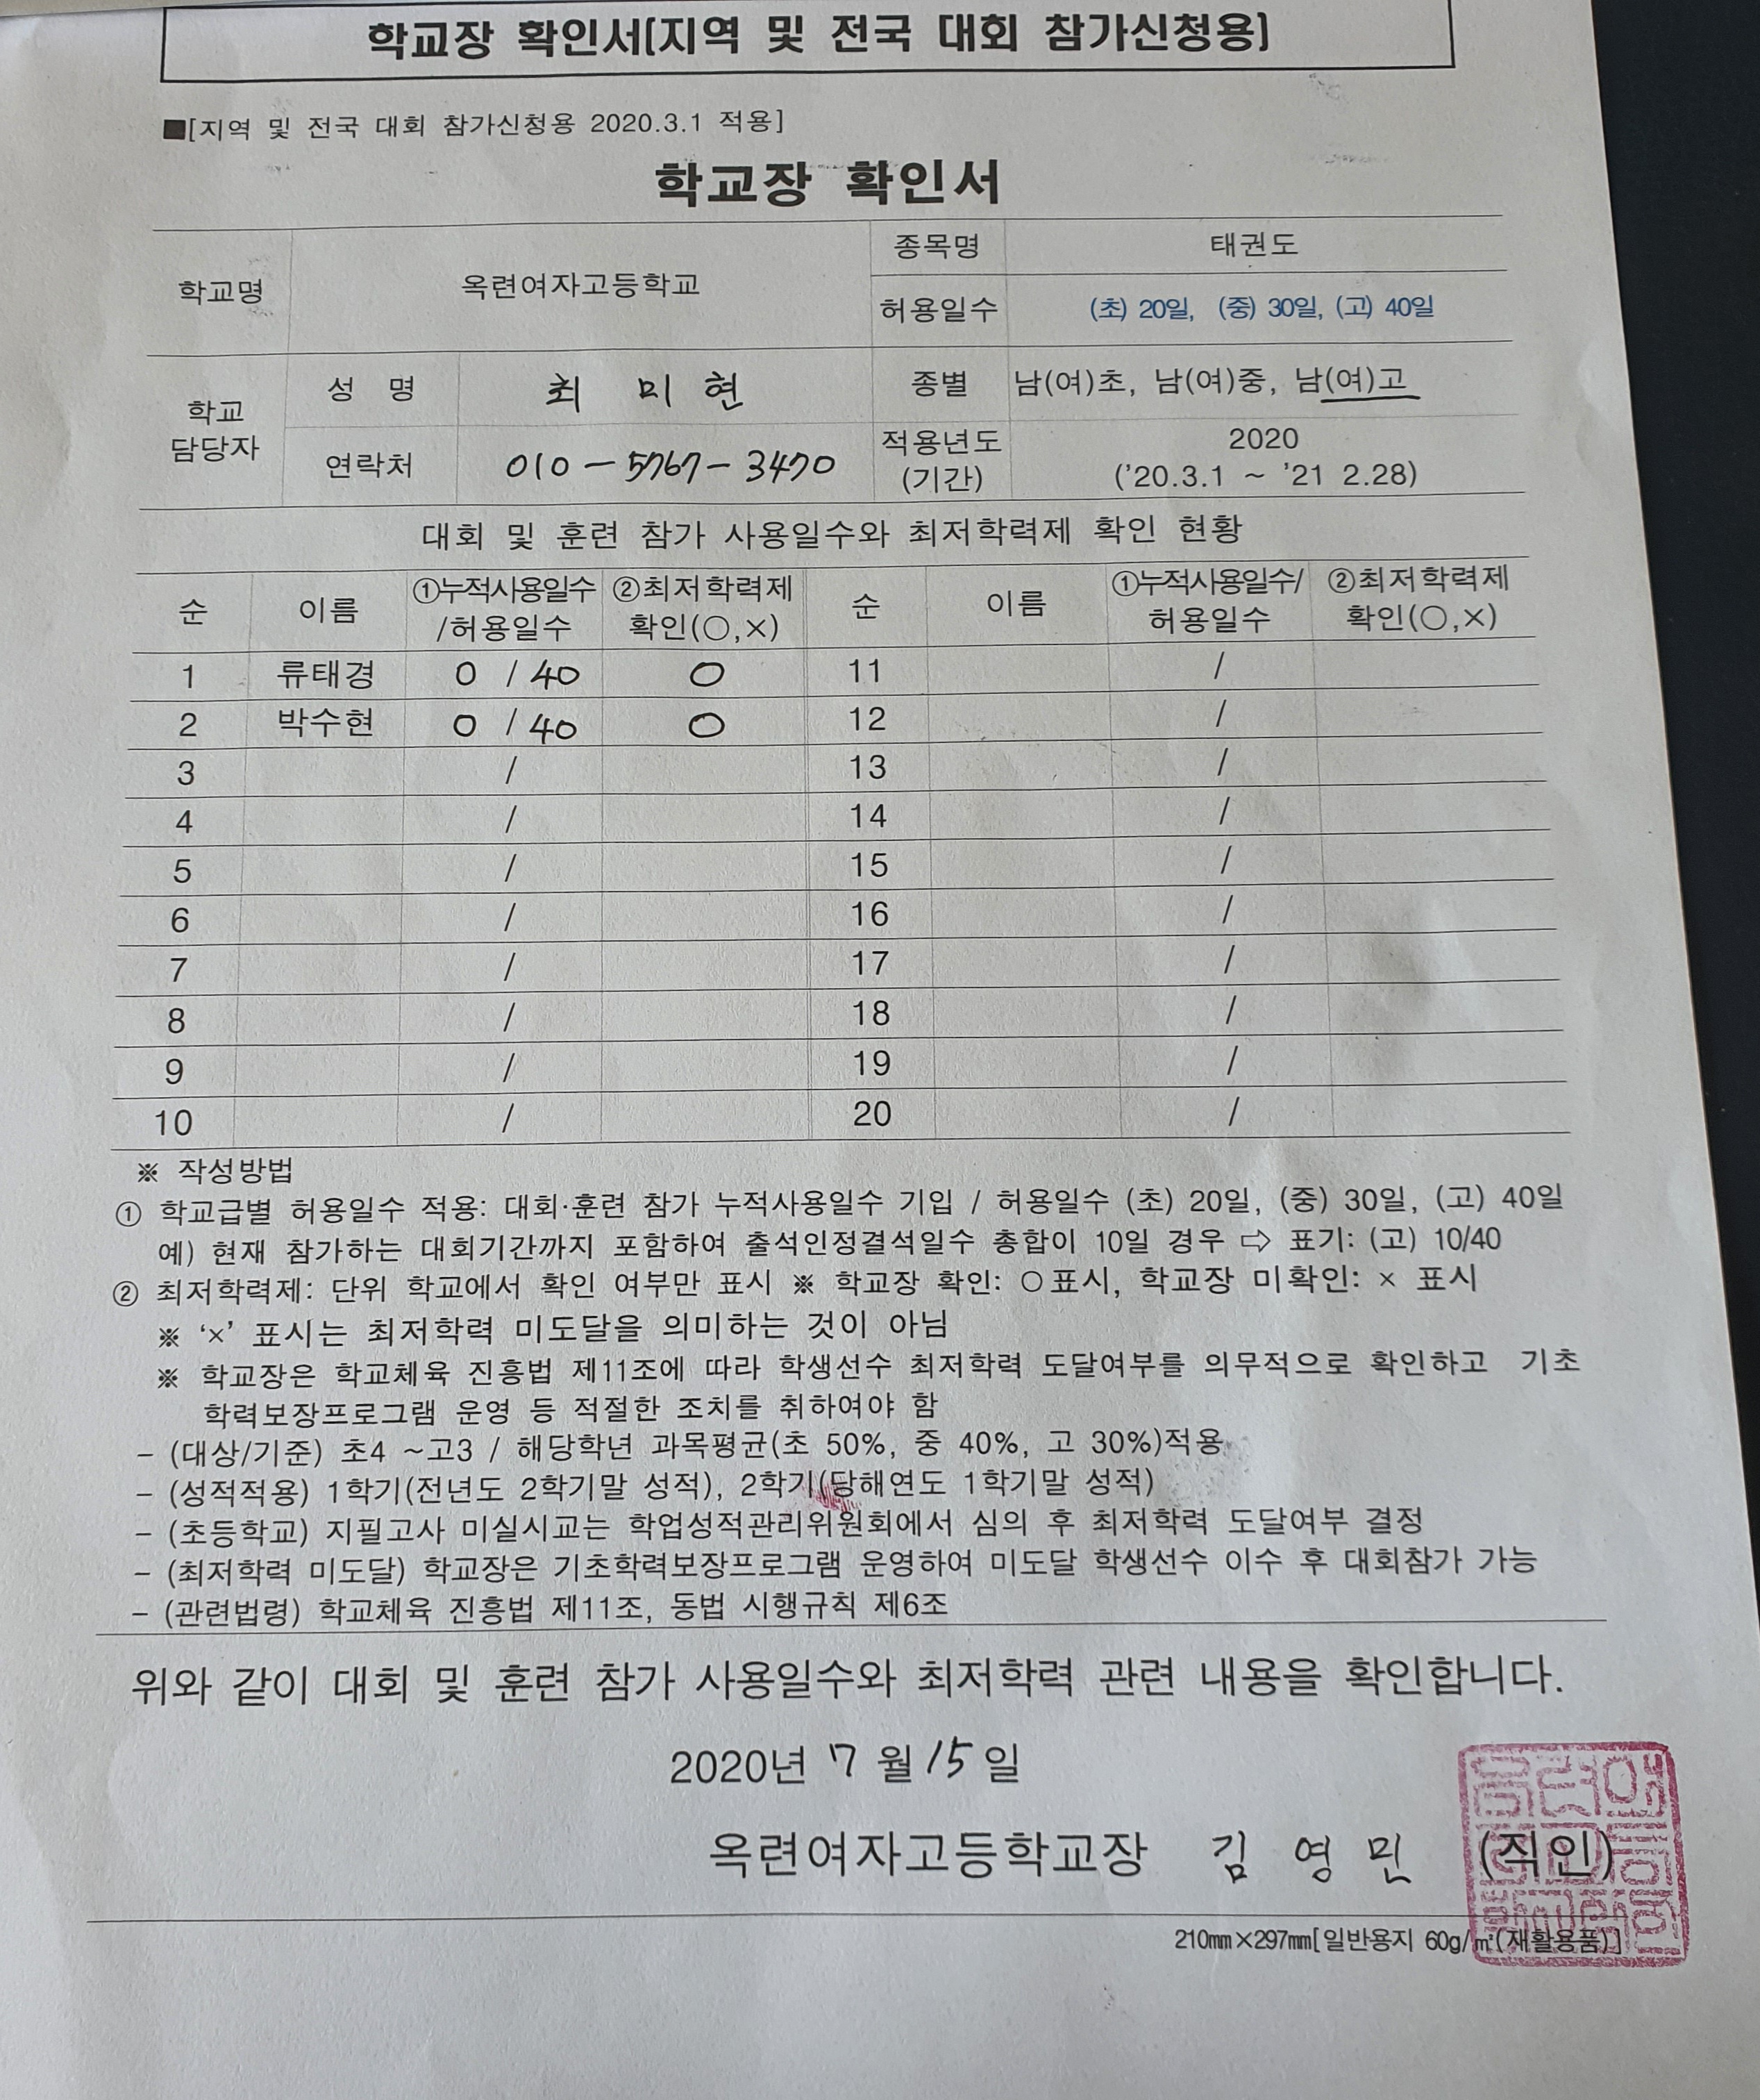 학교장 확인서[지역 및 전국 대회 참가신청용]
■[지역 및 전국 대회 참가신청용 2020.3.1 적용]
학교장 확인서
학교명 옥련여자고등학교 종목명 태권도
허용일수 (초) 20일, (중) 30일, (고) 40일
학교 담당자 성 명 최 미 현 종별 남(여)초, 남(여)중, 남(여)고
연락처 010-5767-3470 적용년도 (기간) 2020 ('20.3.1 ~ '21 2.28)
대회 및 훈련 참가 사용일수와 최저학력제 확인 현황
순 이름 ①누적사용일수/허용일수 ②최저학력제 확인(○,×) 순 이름 ①누적사용일수/허용일수 ②최저학력제 확인(○,×)
1 류태경 0 / 40 ○ 11 /
2 박수현 0 / 40 ○ 12 /
3 / 13 /
4 / 14 /
5 / 15 /
6 / 16 /
7 / 17 /
8 / 18 /
9 / 19 /
10 / 20 /
※ 작성방법
① 학교급별 허용일수 적용: 대회·훈련 참가 누적사용일수 기입 / 허용일수 (초) 20일, (중) 30일, (고) 40일
예) 현재 참가하는 대회기간까지 포함하여 출석인정결석일수 총합이 10일 경우 ⇨ 표기: (고) 10/40
② 최저학력제: 단위 학교에서 확인 여부만 표시 ※ 학교장 확인: ○표시, 학교장 미확인: × 표시
※ '×' 표시는 최저학력 미도달을 의미하는 것이 아님
※ 학교장은 학교체육 진흥법 제11조에 따라 학생선수 최저학력 도달여부를 의무적으로 확인하고 기초
학력보장프로그램 운영 등 적절한 조치를 취하여야 함
- (대상/기준) 초4 ~고3 / 해당학년 과목평균(초 50%, 중 40%, 고 30%)적용
- (성적적용) 1학기(전년도 2학기말 성적), 2학기(당해연도 1학기말 성적)
- (초등학교) 지필고사 미실시교는 학업성적관리위원회에서 심의 후 최저학력 도달여부 결정
- (최저학력 미도달) 학교장은 기초학력보장프로그램 운영하여 미도달 학생선수 이수 후 대회참가 가능
- (관련법령) 학교체육 진흥법 제11조, 동법 시행규칙 제6조
위와 같이 대회 및 훈련 참가 사용일수와 최저학력 관련 내용을 확인합니다.
2020년 7 월 15 일
옥련여자고등학교장 김 영 민 (직인)
210㎜×297㎜[일반용지 60g/㎡(재활용품)]